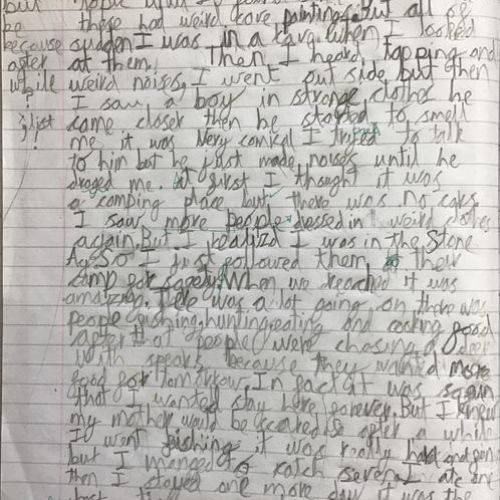 but
be these had weird cave paintings. But all of
because sudden I was in a karg. when I looked
after at them. Then I heard tapping and
while weird noises, I went out side but then
I saw a boy in strange clothes he
i just came closer then he started to smell
me it was very comical I tried to talk
to him but he just made noises until he
draged me. At first I thought it was
a comping place but there was no cars
I saw more people dessed in weird clothes
again. But I realized I was in the Stone
Age So I just followed them to their
camp for safety. When we reached it was
amazing. There was a lot going on there was
people fishing, hunting, eating and cooking food
after that people were chasing a deer
with spears because they wanted more
food for tomorrow. In fact it was so fun
that I wanted stay here forever. But I knew
my mother would be scared so after a while
I went fishing it was really hard and
but I manged to katch several ate one
then I stayed one more day it was the